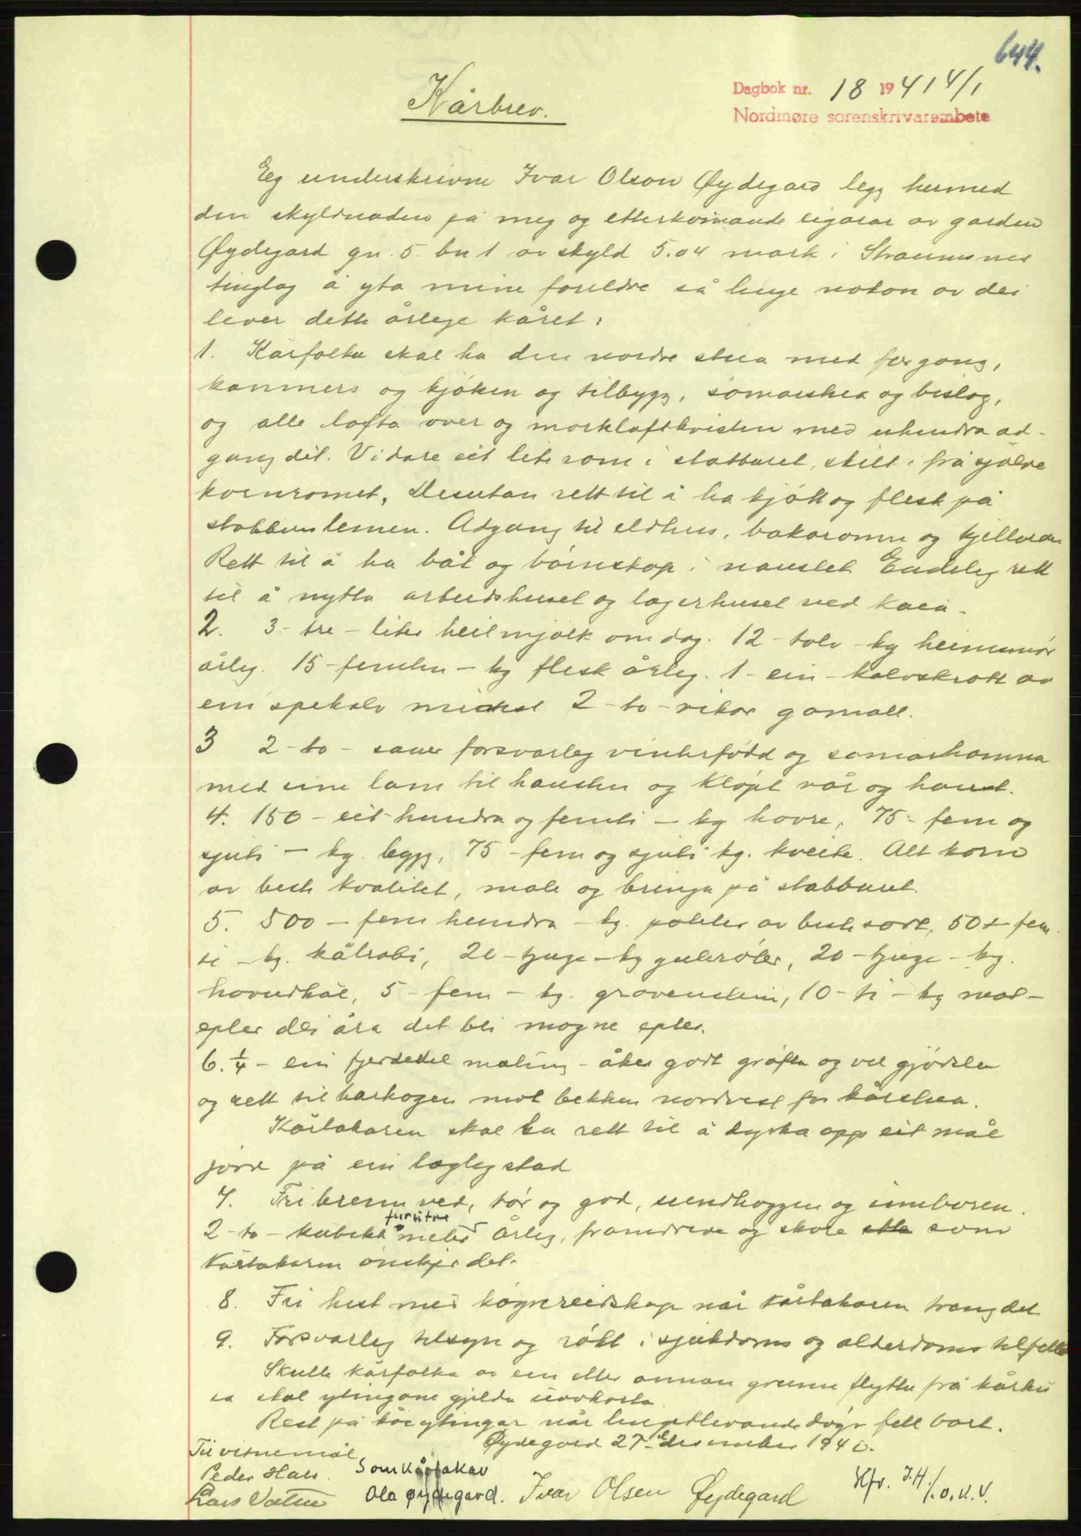 644.
Dagbok nr. 18 1941 4/1
Nordmøre sorenskrivarembete
Kårbrev.
Eg underskrivne Ivar Olson Øydegard legg hermed
den skyldnaden på meg og etterkomande eigarar av garden
Øydegard gn. 5 bn 1 av skyld 5.04 mark i Straumsnes
tinglag å yta mine foreldre så lenge nokon av dei
lever dette årlege kåret:
1. Kårfolka skal ha den nordre stua med forgong,
kammers og kjøken og tilbygg, somarstua og bislag,
og alle lofta over og mørkloftkvisten med uhindra ad-
gang dit. Vidare eit lite rom i stabburet, skilt i frå sjølve
kornromet. Desutan rett til å ha kjøtt og flesk på
stabburslemen. Adgang til eldhus, bakaromn og kjellaren
Rett til å ha båt og bórnskap i naustet. Endeleg rett
til å nytta arbeidshuset og lagerhuset ved kaia.
2. 3 - tre - liter heilmjølk om dag. 12 - tolv - kg heimsmør
årleg. 15 - femten - kg flesk årleg. 1 - ein - kalvskrott av
ein spekalv minst 2 - to - vikor gamall.
3 2 - to - sauer forsvarleg vinterfødd og somarhamna
med sine lam til hausten og kløpt vår og haust.
4. 150 - eit hundra og femti - kg havre, 75 - fem og
sjuti - kg. bygg, 75 - fem og sjuti kg. kveite. Alt korn
av beste kvalitet, male og bringa på stabburet.
5. 500 - fem hundra - kg. poteter av beste sort, 50 - fem
ti - kg. kålrabi, 20 - tjuge - kg gulerøter, 20 - tjuge - kg.
hovudkål, 5 - fem - kg. gravenstein, 10 - ti - kg mat-
epler dei åra det bli mogne epler.
6. 1/4 - ein fjerdedel maling - åker godt grøfta og vel gjødsla
og rett til harhagen mot bekken nordvest for kårstua.
Kårtakaren skal ha rett til å dyrka opp eit mål
jord på ein lagleg stad
7. Fri brenneved, tør og god, sundhoggen og innboren.
furutre
2 - to - kubikk meter årleg, framdreve og skore som
kårtakaren ønskjer det.
8. Fri hest med køgnreidskap når kårtakaren trang det
9. Forsvarleg tilsyn og røkt i sjukdoms og alderdoms tilfelle
Skulle kårfolka av ein eller annan grunn flytta frå kårhu
sa skal ytingane gjelda uavkorta.
Rest på kårytingar når lengstlevande døyr fell bort.
Øydegard 27 desember 1940.
Til vitnemål
Peder Hals. Som kårtakar
Lars Vatne Ola Øydegard. Ivar Olsen Øydegard Kfr. I.H./.o.V.V.